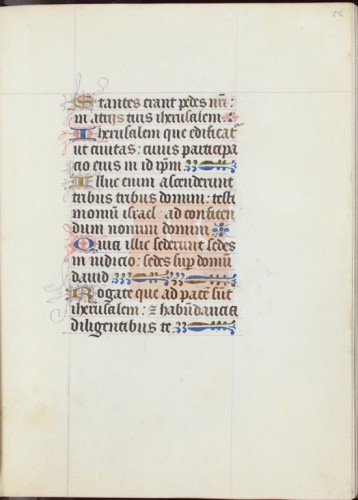 Stantes erant pedes nr̄i:
in atrijs tuis iherusalem
Iherusalem que edificat̄
ut ciuitas: cuius participa
cio eius in id ip̄m
Illuc enim ascenderunt
tribus tribus domini: testi
monium israel: ad confiten
dum nomini domini
Quia illic sederunt sedes
in iudicio: sedes sup̄ domū
dauid
Rogate que ad pacē sūt
iherusalem: ⁊ habūdancia
diligentibus te